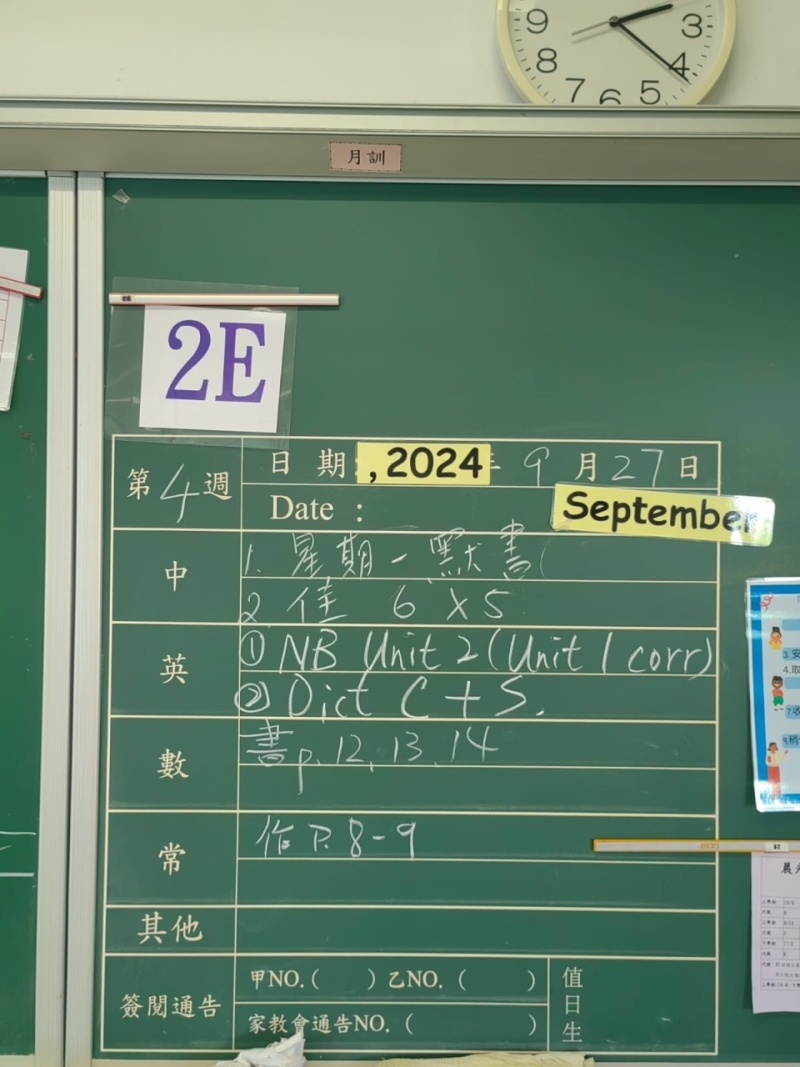 9
3
8
4
7
6
5
月訓
2E
第4週
日期
,2024
9月27日
Date :
September
中
1. 星期一默書
2. 佳 6×5
英
① NB Unit 2 (Unit 1 corr)
② Dict C + S.
數
書p.12,13,14
常
作P.8-9
其他
簽閱通告
甲NO.( ) 乙NO.( )
家教會通告NO.( )
值日生